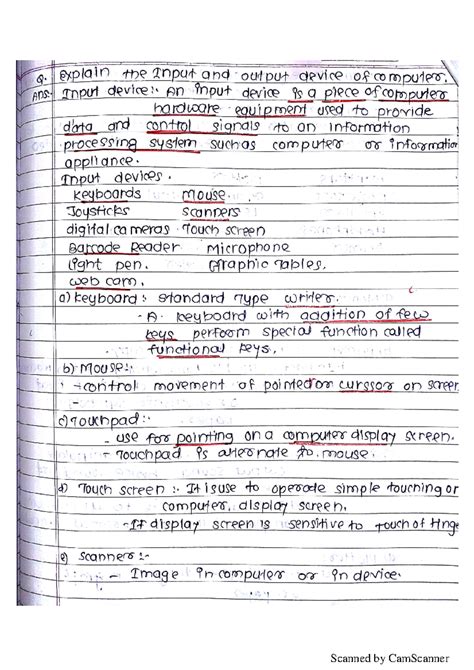 Q. Explain the Input and output device of computer.
Ans:- Input device:- An input device is a piece of computer
hardware equipment used to provide
data and control signals to an information
processing system suchas computer or information
appliance.
Input devices.
keyboards Mouse.
Joysticks scanners
digital cameras Touch screen
Barcode Reader Microphone
Light pen. Graphic Tables.
web cam.
a) keyboard : standard Type writer.
- A keyboard with addition of few
keys perform special function called
functional keys.
b) Mouse:-
- control movement of pointed or curssor on screen
c) Touchpad:-
- use for pointing on a computer display screen.
- Touchpad is alternate to mouse.
d) Touch screen :- It is use to operate simple touching on
computer, display screen.
- It display screen is sensitive to touch of
e) Scanner:-
- Image in computer or in device.
Scanned by CamScanner